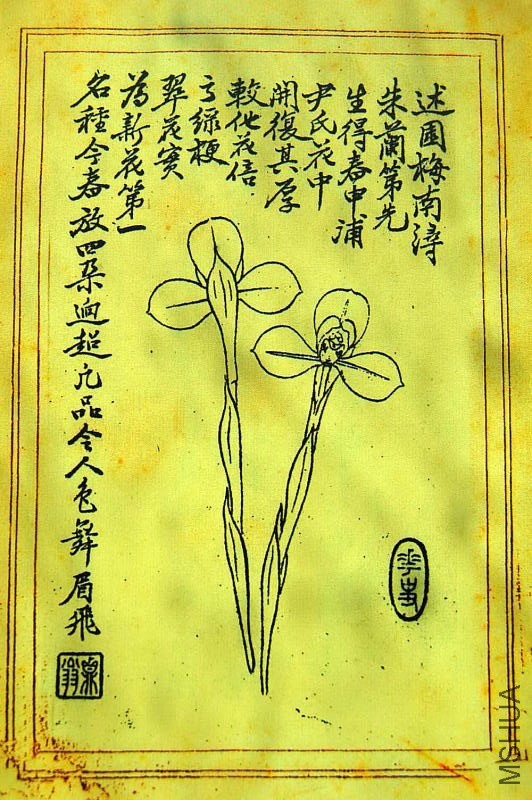 述圃梅南潯
朱蘭第先
生得春申浦
尹氏花中
開復其厚
較他花倍
之綠梗
翠花實
為新花第一
名種今春放四朵迥超凡品令人色舞眉飛
MSHUA